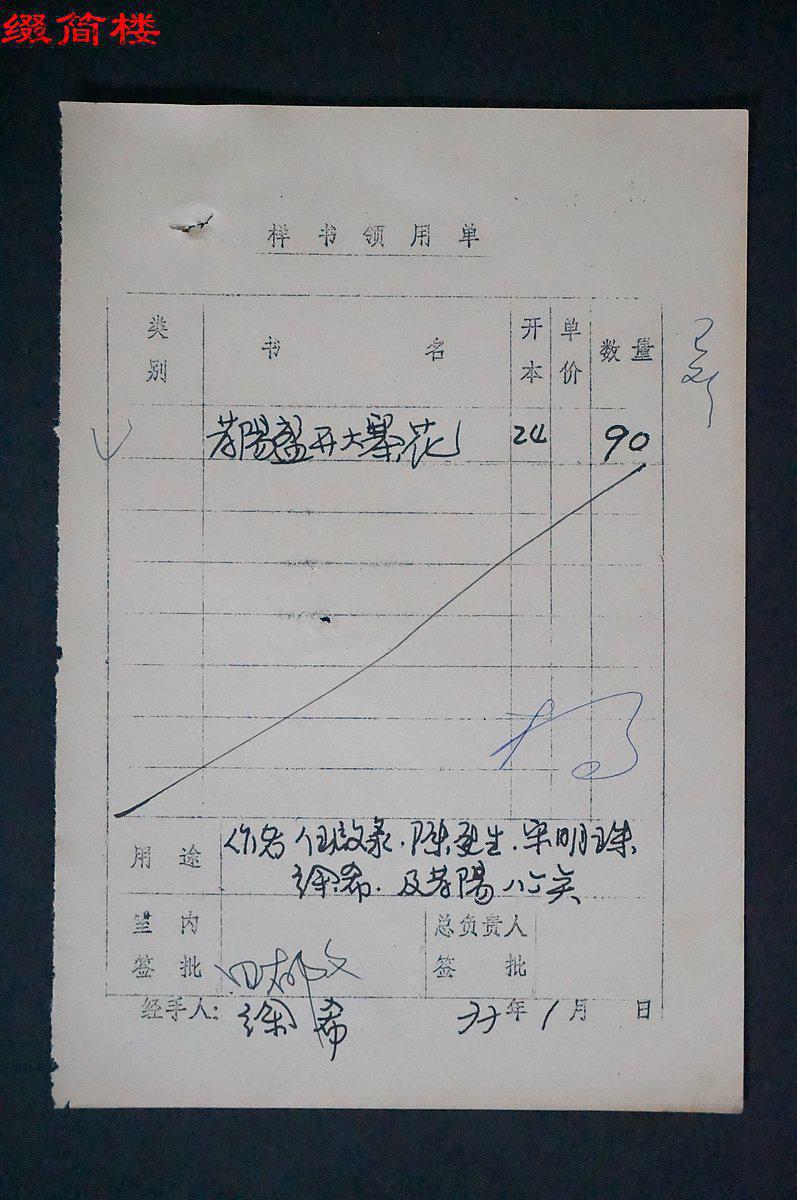 缀简楼
样书领用单
类别 书名 开本 单价 数量
昔陽盛开大寨花 24 90
用途 作者 任啟录.陈更生.宋明珠
徐希.及昔陽
室内签批 总负责人签批
经手人: 徐希 77年1月 日